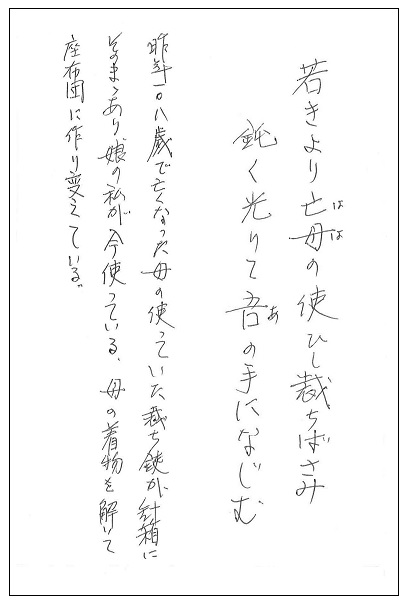 若きより亡母の使ひし裁ちばさみ
はは
鈍く光りて吾の手になじむ
あ
昨年一〇八歳で亡くなった母の使っていた裁ち鋏が針箱に
そのまゝあり娘の私が今使っている、母の着物を解いて
座布団に作り変えている。